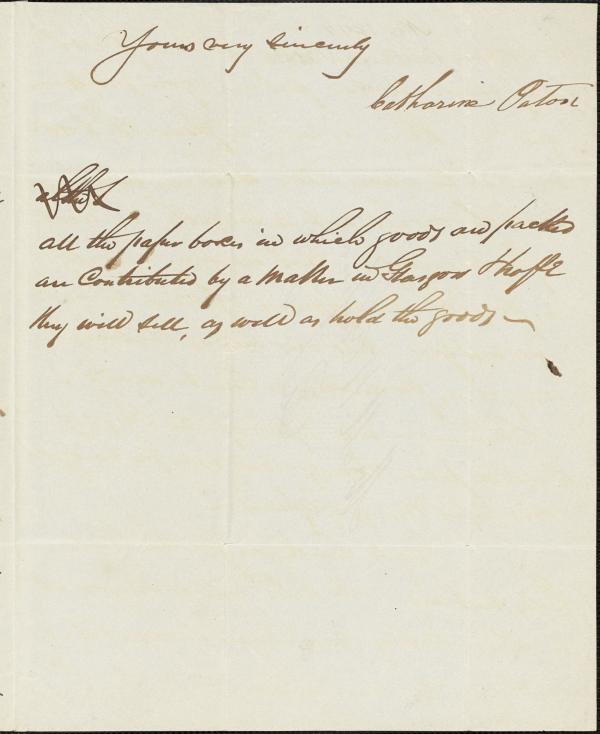 Yours very sincerely
Catharine Paton
all the paper boxes in which goods are packed
are Contributed by a Maker in Glasgow & hope
they will sell, as well as hold the goods —